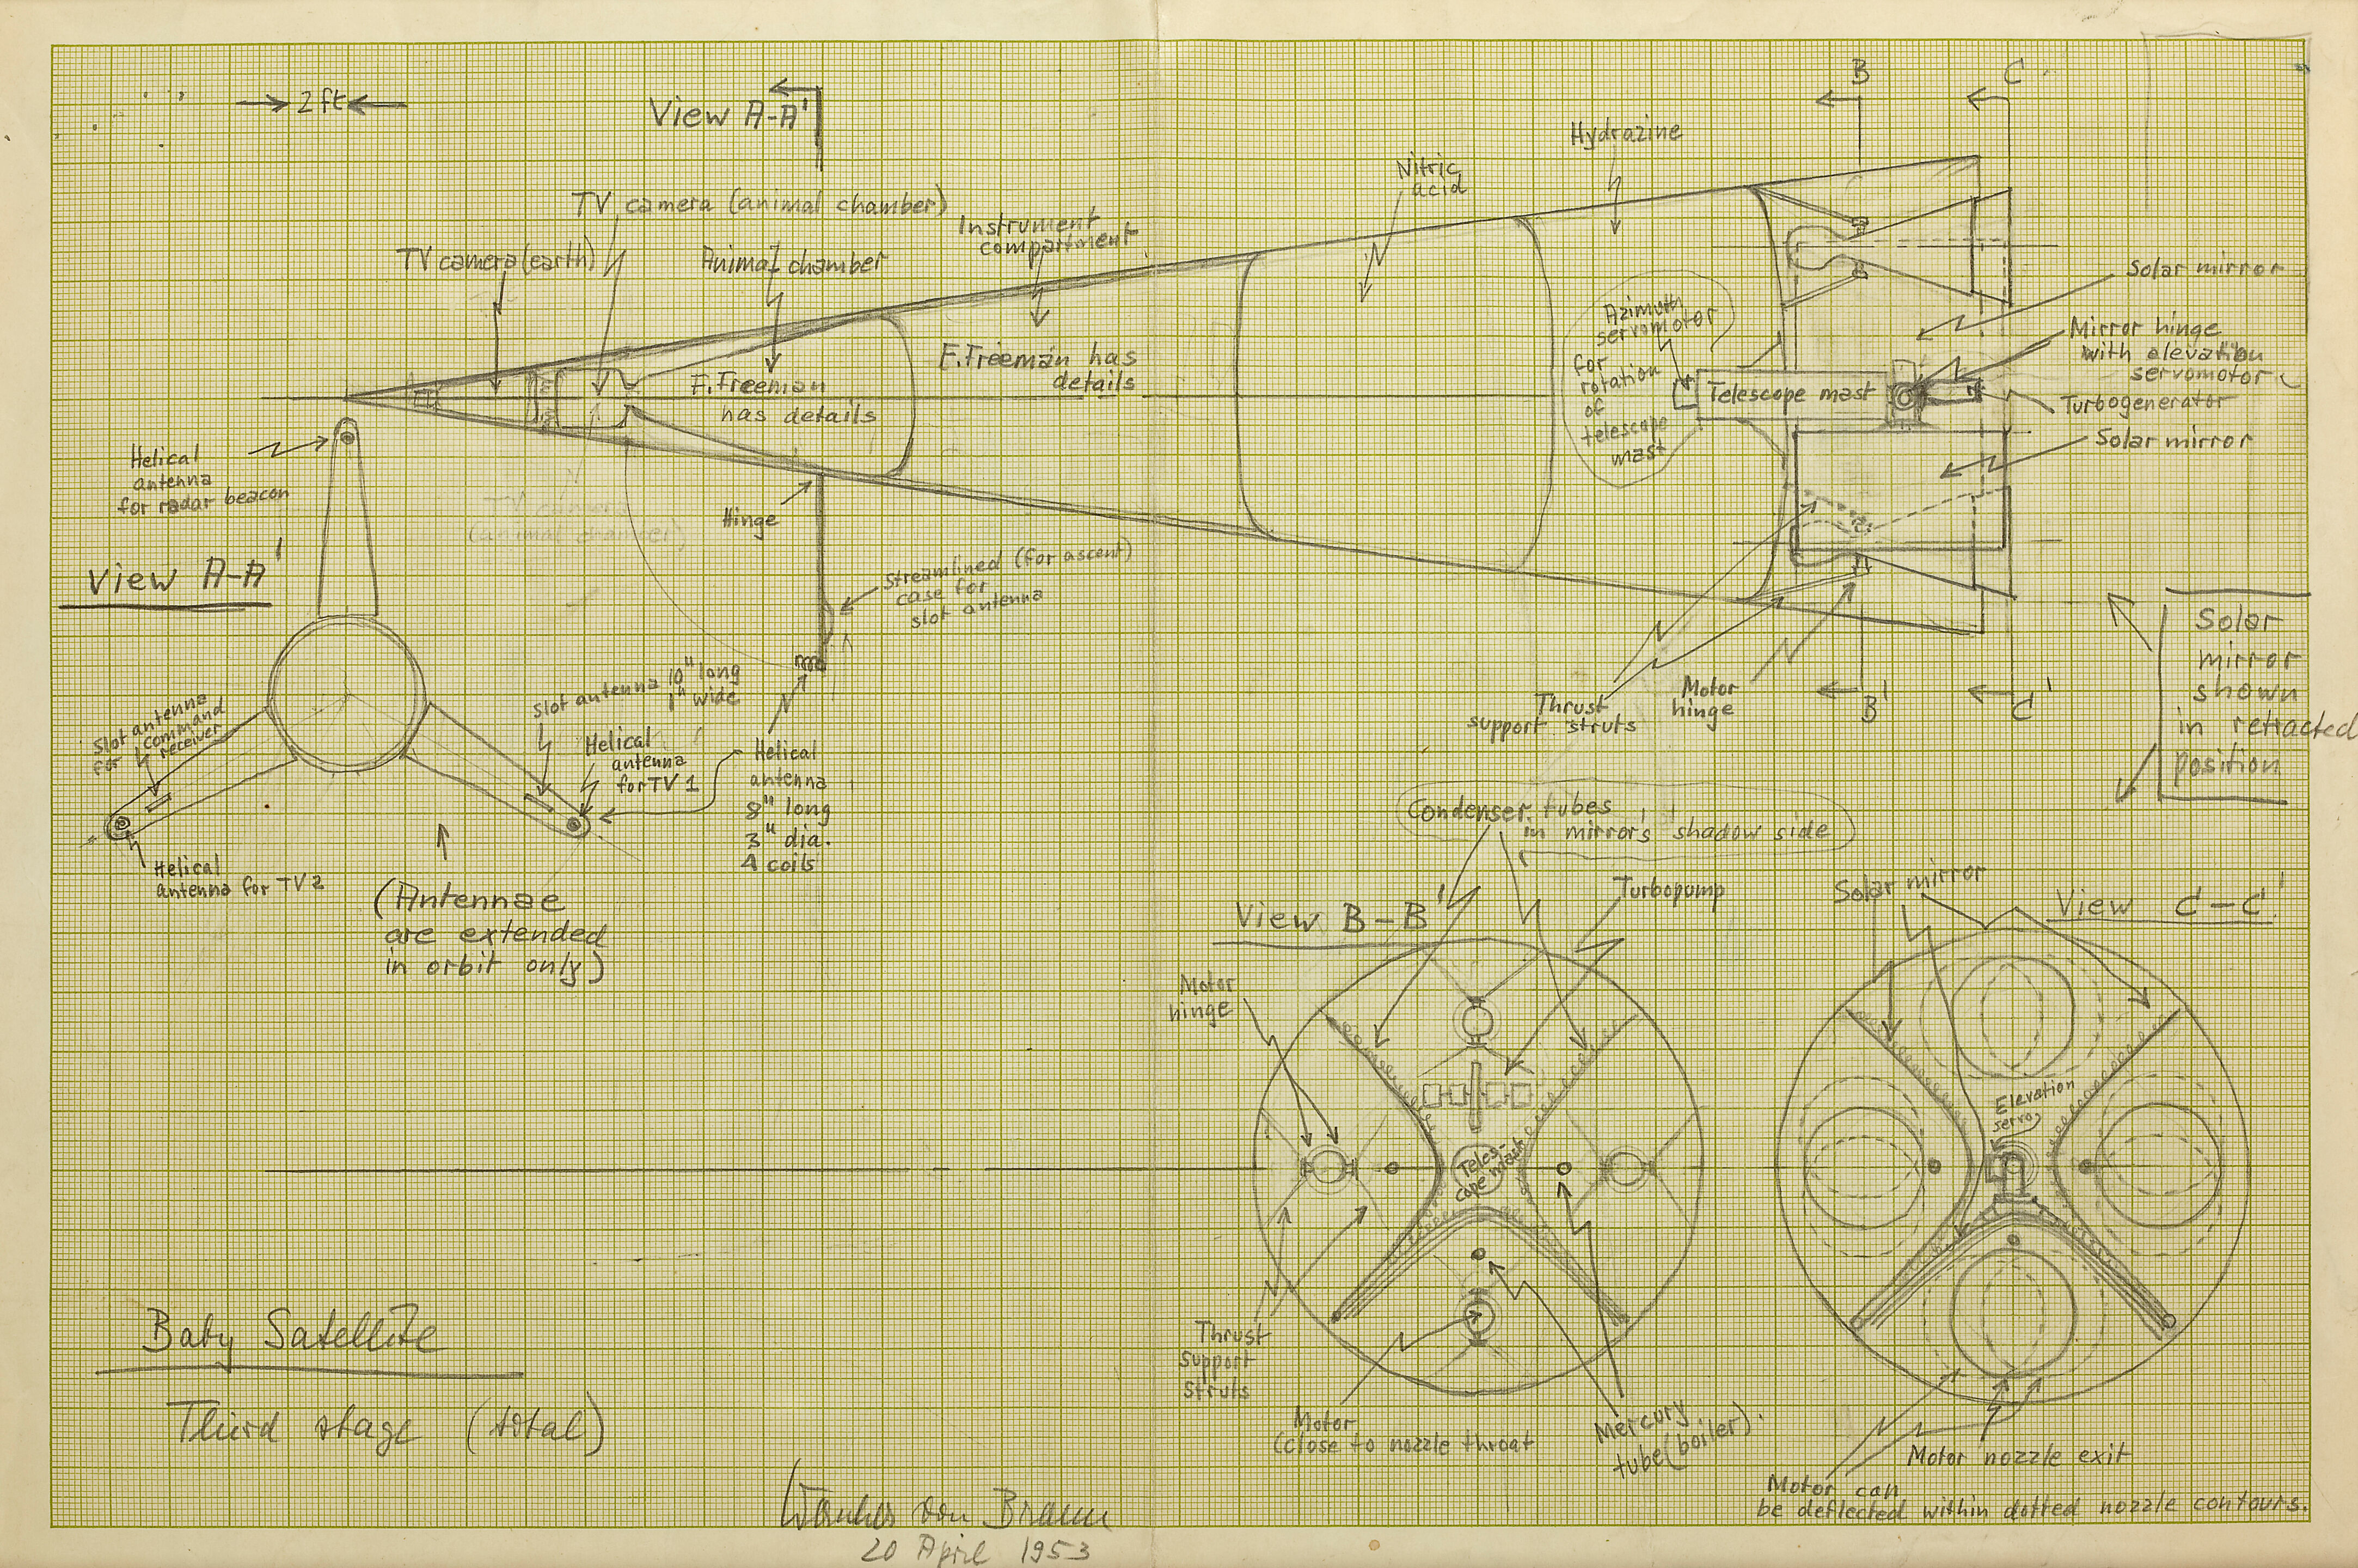 2 ft
View A-A'
B
C
Hydrazine
Nitric
acid
TV camera (animal chamber)
Instrument
compartment
TV camera (earth)
Animal chamber
Solar mirror
Azimuth
servomotor
for
rotation
of
telescope
mast
Mirror hinge
with elevation
servomotor
F. Freeman has
details
F. Freeman
has details
Telescope mast
Turbogenerator
Solar mirror
Helical
antenna
for radar beacon
TV camera
(animal chamber)
Hinge
View A-A'
Streamlined (for ascent)
case for
slot antenna
Solar
mirror
shown
in retracted
position
Slot antenna 10" long
1" wide
Thrust
support struts
Motor
hinge
B'
C'
Slot antenna
for command
receiver
Helical
antenna
for TV 1
Helical
antenna
8" long
3" dia.
4 coils
Helical
antenna for TV 2
(Antennae
are extended
in orbit only)
Condenser tubes
in mirrors' shadow side
Turbopump
Solar mirror
View B-B'
View C-C'
Motor
hinge
Elevation
servo
Teles-
cope mast
Thrust
support
struts
Motor
(close to nozzle throat
Mercury
tube (boiler).
Motor nozzle exit
Motor can
be deflected within dotted nozzle contours.
Baby Satellite
Third stage (total)
Wernher von Braun
20 April 1953